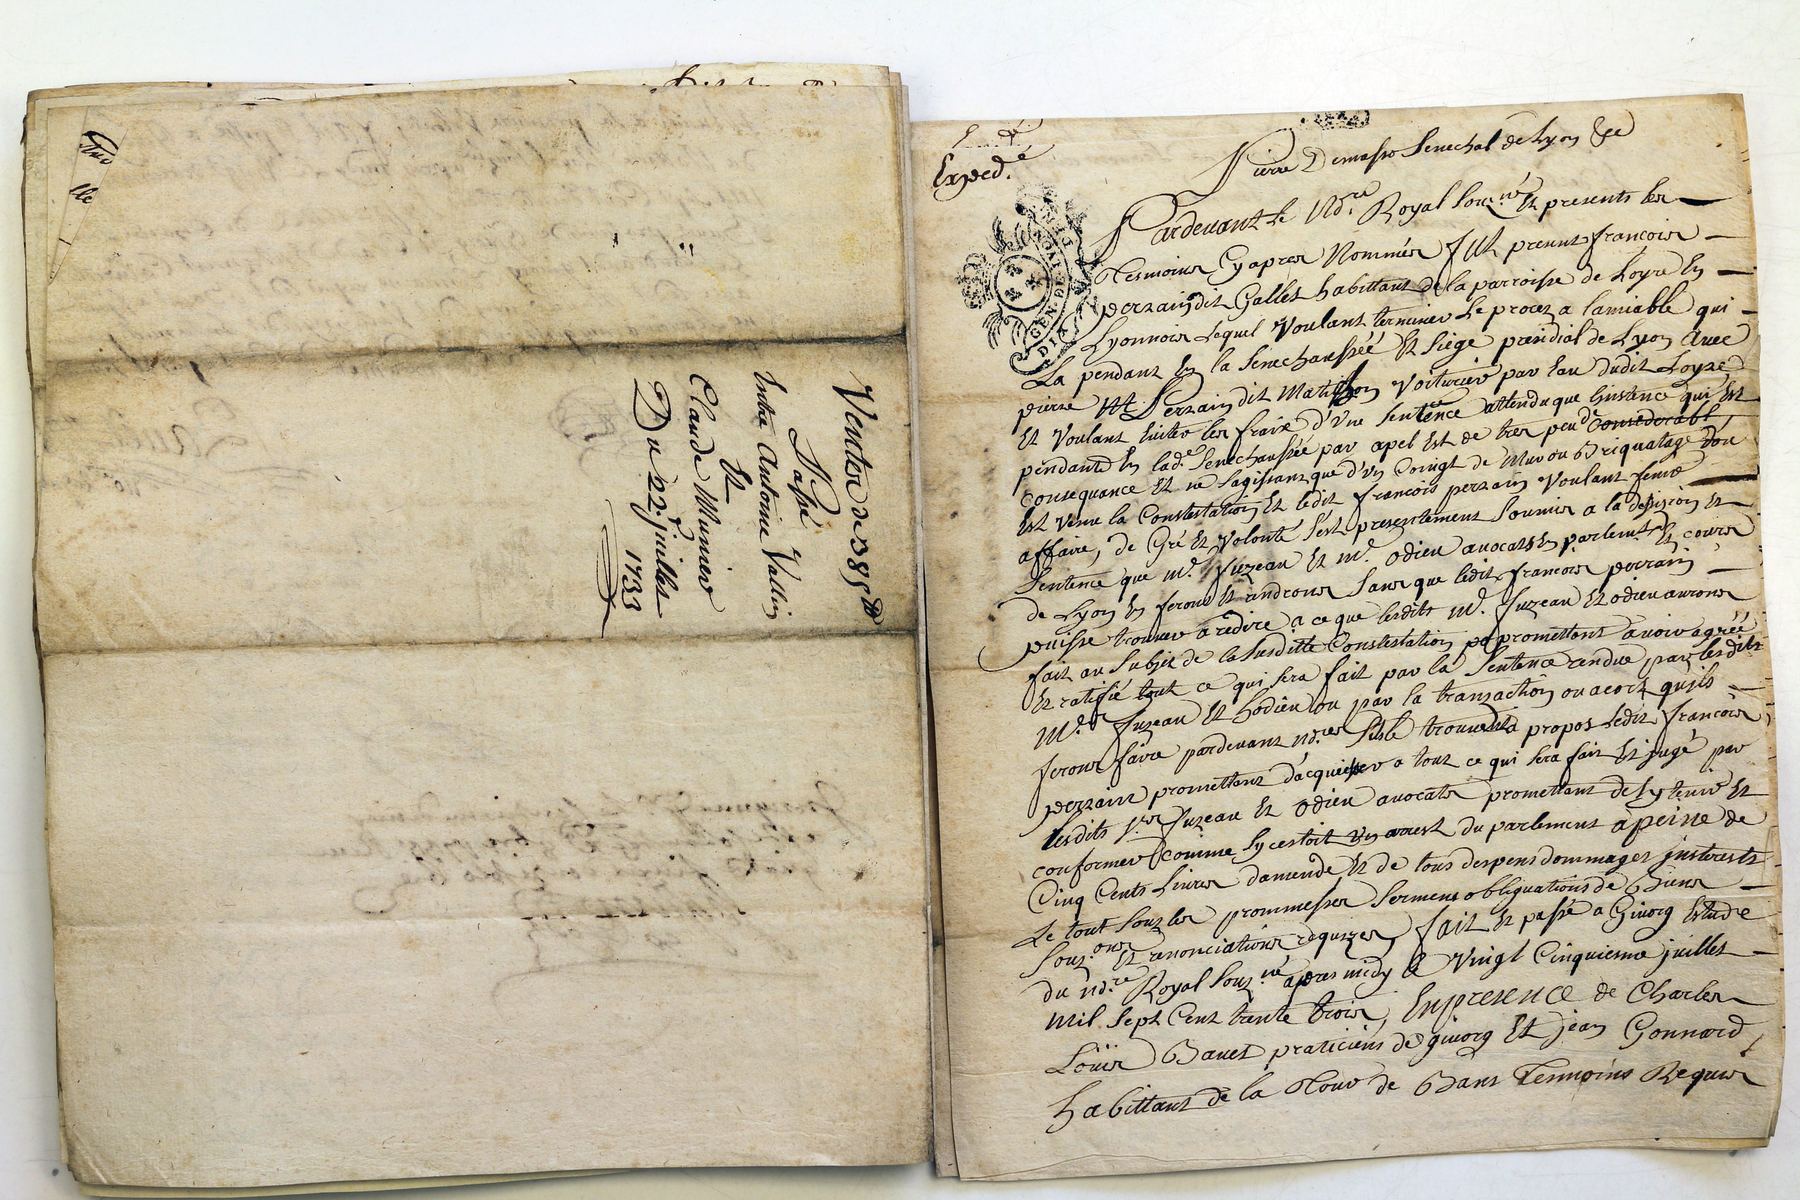 Vente de 385 lb
Passé
Entre Antoine Vallin
Et
Claude Munier
Du 22e juillet
1733
Exped.é
Pierre Demasso Senechal de Lyon &c
GEN. DE
Pardevant le No.re Royal souz.né Et presents les
Tesmoins Cyapres Nommés fut present francois
perrain dit Gallet habittant de la parroisse de Loyre En
Lyonnois Lequel Voulant terminer Le procez a lamiable qui
La pendant En la Senechaussée Et Siege presidial de Lyon avec
pierre Perrain dit Voiturier par Eau dudit Loyre
Et Voulant Eviter les fraix d'vne Sentence attendu que Linstence qui Est
pendante En lad.e Senechaussée par apel Est de tres peu de
Consequance Et ne Sagissant que d'vn Coingt de Mur ou Briquatage d'ou
Est venu la Constestation Et ledit francois perrain Voulant finir
affaire, de Gré Et volonté s'est presentement Soumis a la dessizion Et
Sentence que M.e fuzeau Et M.e odieu avocats En parlem.t Et cours
de Lyon En feront Et randront Sans que ledit francois perrain
puisse trouver a redire a ce que lesdits M.e fuzeau Et odieu auront
fait au Subjet de la Susditte Constestation promettant avoir agréé
Et ratifié tout ce qui sera fait par la Sentence randue par lesdits
M.e fuzeau Et hodieu ou par la transaction ou acort quils
feront faire pardevant no.res Sisle trouvent a propos ledit francois
perrain promettant dacquiesser a tout ce qui sera fait Et jugé par
lesdits s.rs fuzeau Et odieu avocats promettant de sy tenir Et
conformer comme Sy cestoit vn arrest du parlement a peine de
Cinq Cents Livres damende Et de tous despens dommages Insterests
Le tout Souz les prommesses Serment obliguations de Biens
Souz.ons Et renonciations requizes, fait Et passé a Givorg Estude
du no.re Royal Souz.né apres midy le Vingt Cinquiesme juillet
Mil Sept Cent trente trois, En presence de Charles
Loüis Bavet praticiens de givorg Et jean Gonnard
habittant de la Tour de Bans Tesmoins Requis